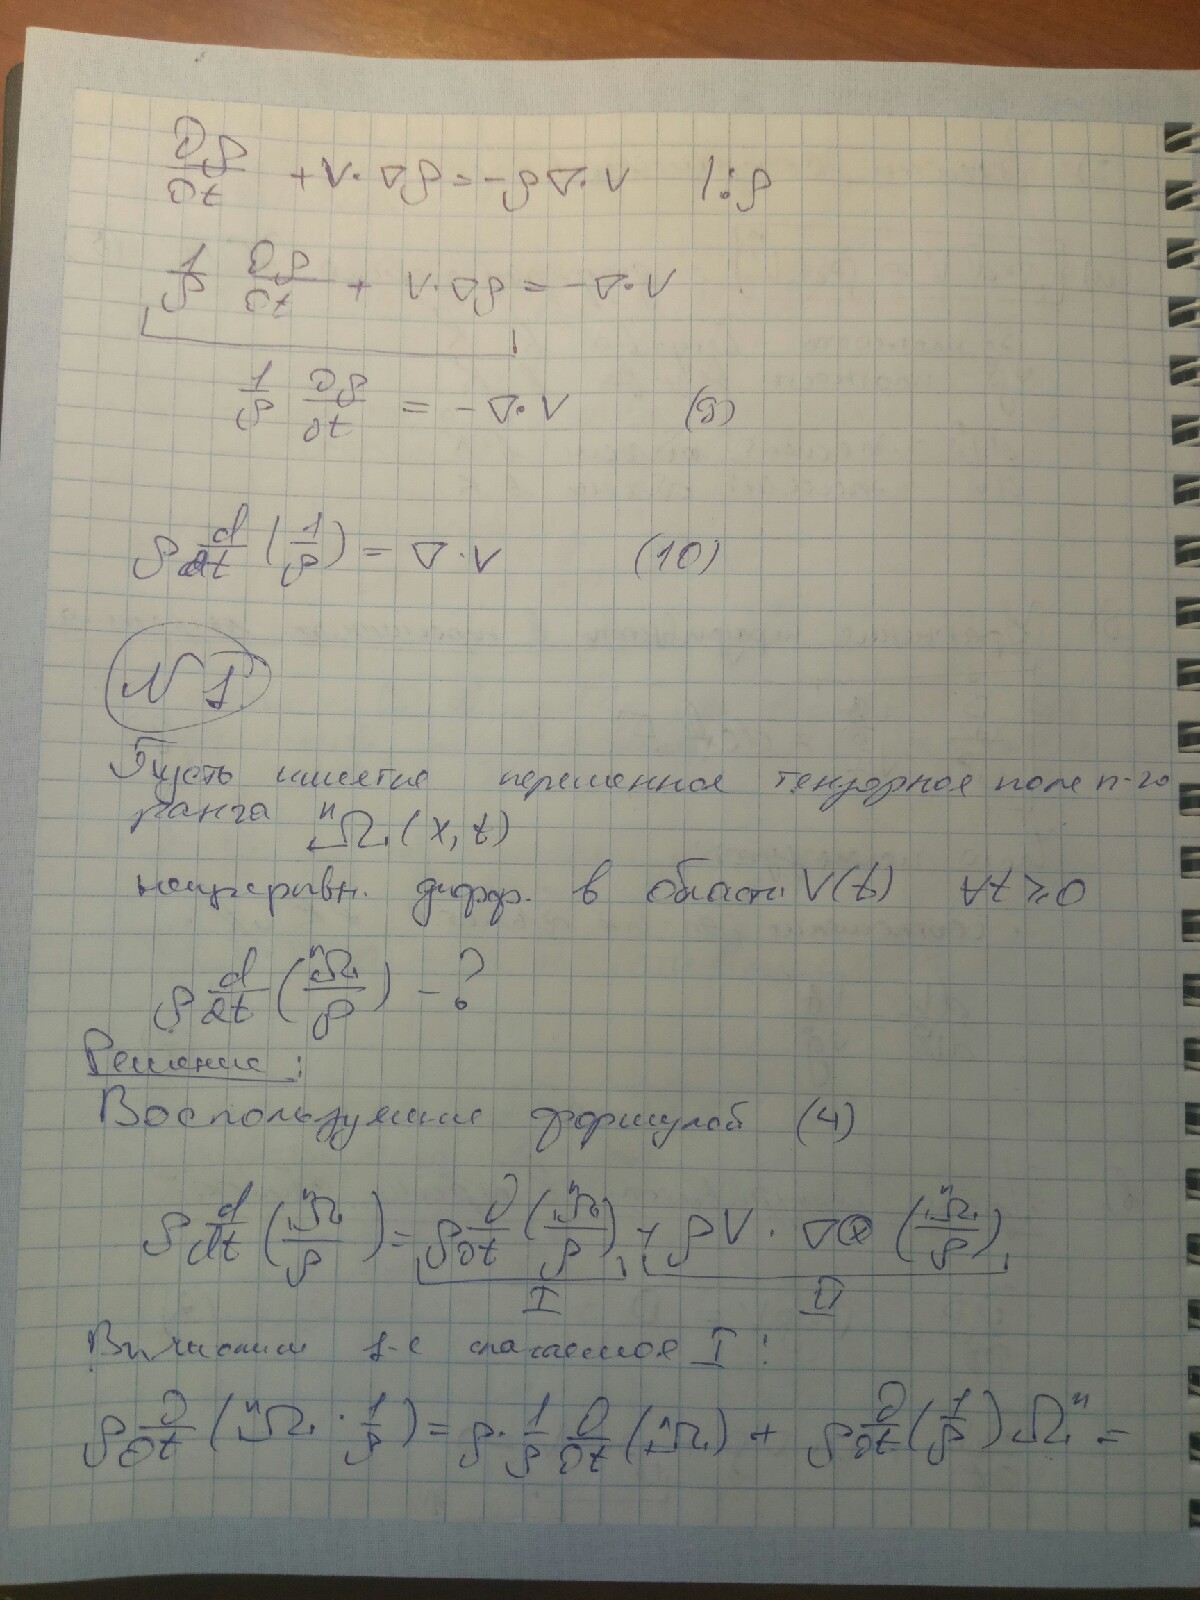 ∂ρ/∂t + V·∇ρ = -ρ∇·V |:ρ
1/ρ ∂ρ/∂t + V·∇ρ = -∇·V
1/ρ ∂ρ/∂t = -∇·V (9)
ρ d/dt (1/ρ) = ∇·V (10)
N 1
Пусть имеется переменное тензорное поле n-го
ранга ⁿΩ (x, t)
непрерывн. дифф. в области V(t) ∀t ≥ 0
ρ d/dt (ⁿΩ/ρ) - ?
Решение:
Воспользуемся формулой (4)
ρ d/dt (ⁿΩ/ρ) = ρ ∂/∂t (ⁿΩ/ρ) + ρV · ∇⊗ (ⁿΩ/ρ)
I II
Вычислим 1-е слагаемое I:
ρ ∂/∂t (ⁿΩ · 1/ρ) = ρ · 1/ρ ∂/∂t (ⁿΩ) + ρ ∂/∂t (1/ρ) Ωⁿ =